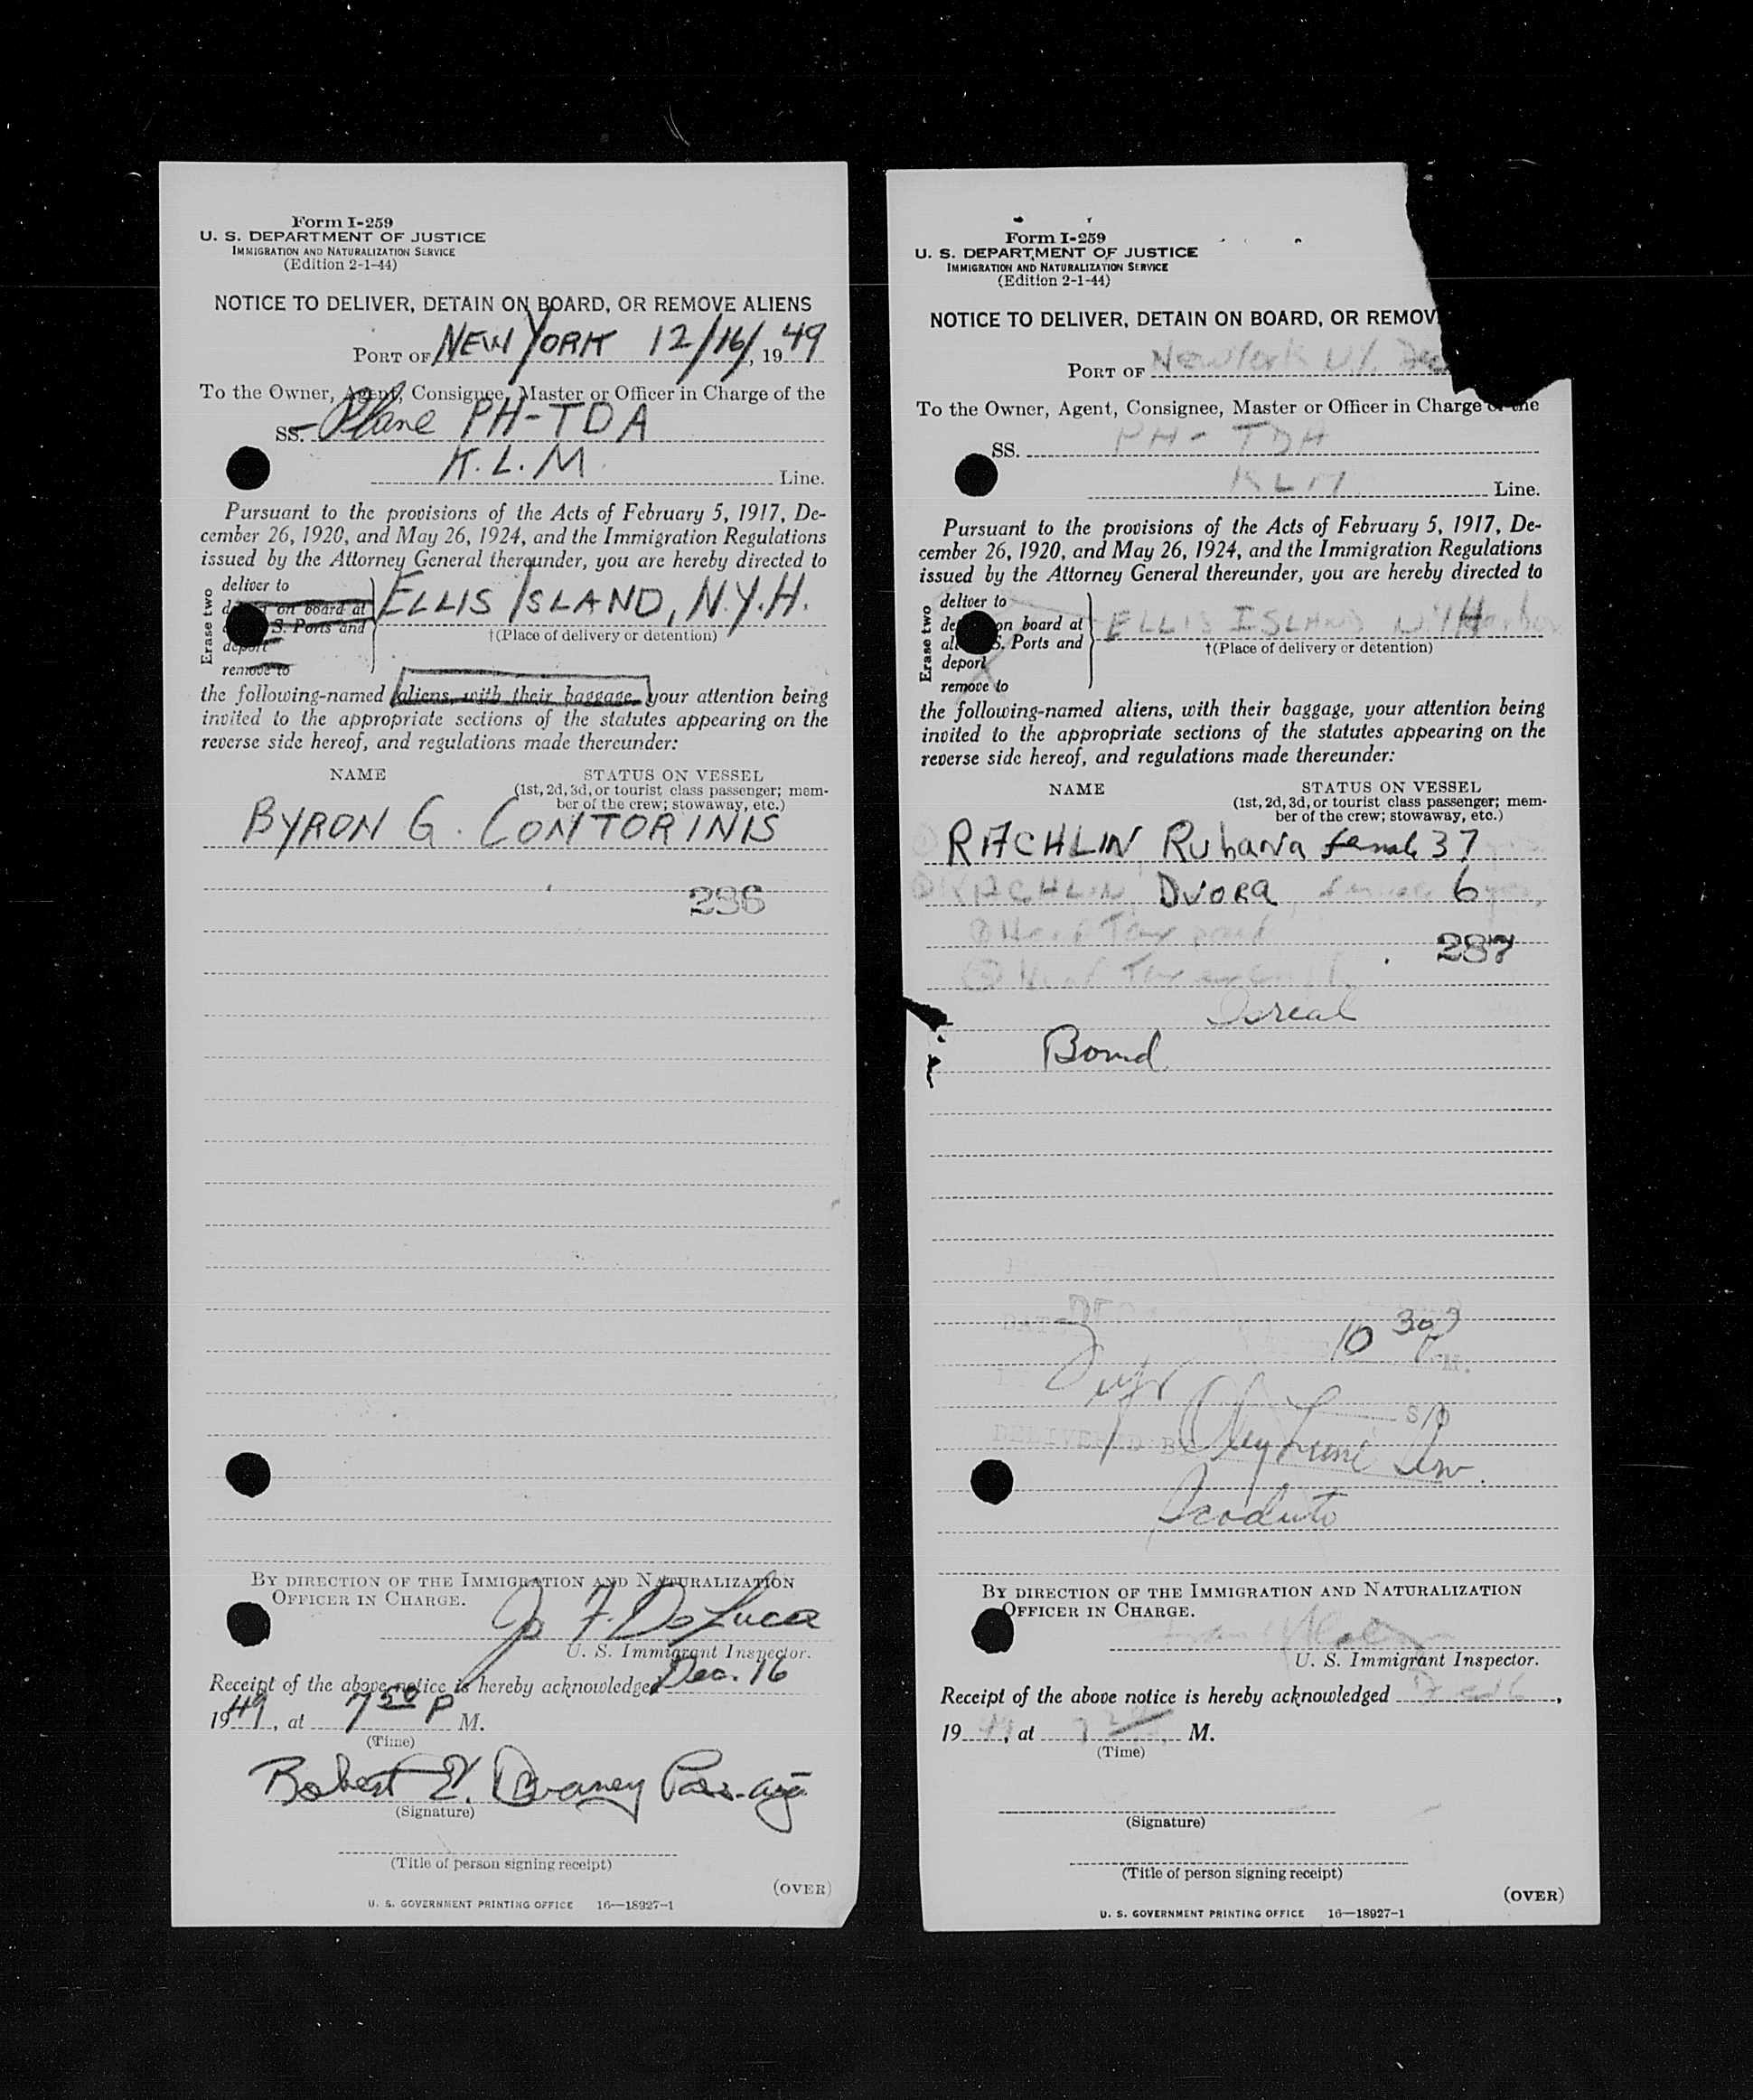 Form I-259
U. S. DEPARTMENT OF JUSTICE
IMMIGRATION AND NATURALIZATION SERVICE
(Edition 2-1-44)
NOTICE TO DELIVER, DETAIN ON BOARD, OR REMOVE ALIENS
PORT OF NEW YORK 12/16/, 1949
To the Owner, Agent, Consignee, Master or Officer in Charge of the
SS. Plane PH-TDA
K.L.M. Line.
Pursuant to the provisions of the Acts of February 5, 1917, De-
cember 26, 1920, and May 26, 1924, and the Immigration Regulations
issued by the Attorney General thereunder, you are hereby directed to
Erase two
deliver to
on board at
S. Ports and
deport
remove to
ELLIS ISLAND, N.Y.H.
†(Place of delivery or detention)
the following-named aliens, with their baggage, your attention being
invited to the appropriate sections of the statutes appearing on the
reverse side hereof, and regulations made thereunder:
NAME STATUS ON VESSEL
(1st, 2d, 3d, or tourist class passenger; mem-
ber of the crew; stowaway, etc.)
BYRON G. CONTORINIS
296
BY DIRECTION OF THE IMMIGRATION AND NATURALIZATION
OFFICER IN CHARGE.
F. DeLuca
U. S. Immigrant Inspector.
Receipt of the above notice is hereby acknowledged Dec. 16
1949, at 7 50 P M.
(Time)
Robert E. Devaney
(Signature)
(Title of person signing receipt)
(OVER)
U. S. GOVERNMENT PRINTING OFFICE 16—18927-1
Form I-259
U. S. DEPARTMENT OF JUSTICE
IMMIGRATION AND NATURALIZATION SERVICE
(Edition 2-1-44)
NOTICE TO DELIVER, DETAIN ON BOARD, OR REMOV
PORT OF New York N.Y. Dec
To the Owner, Agent, Consignee, Master or Officer in Charge of the
SS. PH-TDA
KLM Line.
Pursuant to the provisions of the Acts of February 5, 1917, De-
cember 26, 1920, and May 26, 1924, and the Immigration Regulations
issued by the Attorney General thereunder, you are hereby directed to
Erase two
deliver to
on board at
S. Ports and
deport
remove to
ELLIS ISLAND N.Y. Harbor
†(Place of delivery or detention)
the following-named aliens, with their baggage, your attention being
invited to the appropriate sections of the statutes appearing on the
reverse side hereof, and regulations made thereunder:
NAME STATUS ON VESSEL
(1st, 2d, 3d, or tourist class passenger; mem-
ber of the crew; stowaway, etc.)
RACHLIN Ruhana female 37
RACHLIN, DVORA, female 6
Head Tax paid
287
Head Tax exempt
Isreal
Bond
DATE DEC
10 30 P M.
DELIVERED BY
Scoduto
BY DIRECTION OF THE IMMIGRATION AND NATURALIZATION
OFFICER IN CHARGE.
U. S. Immigrant Inspector.
Receipt of the above notice is hereby acknowledged Dec 16,
1949, at M.
(Time)
(Signature)
(Title of person signing receipt)
(OVER)
U. S. GOVERNMENT PRINTING OFFICE 16—18927-1